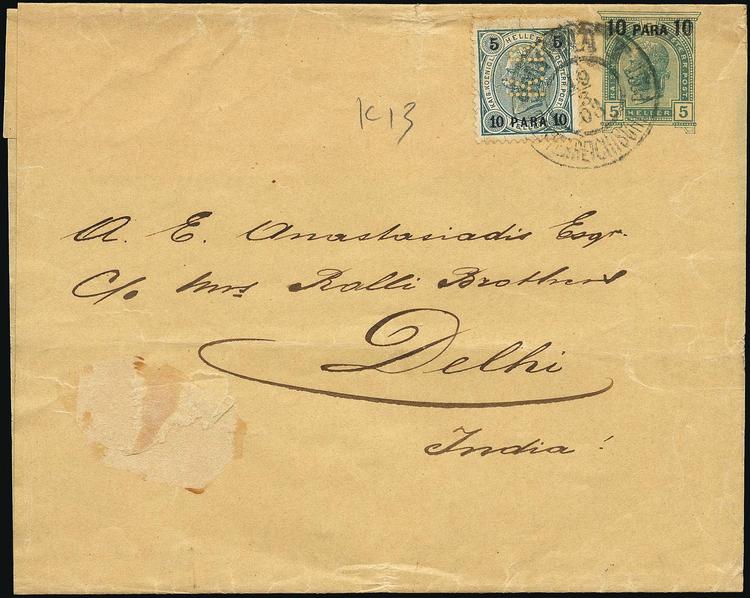 10 PARA 10
5 HELLER 5
KAIS. KOENIGL. ÖSTERR. POST
10 PARA 10
5 HELLER 5
03
K13
A. E. Anastasiadis Esqr.
C/o Mrs Ralli Brothers
Delhi
India!